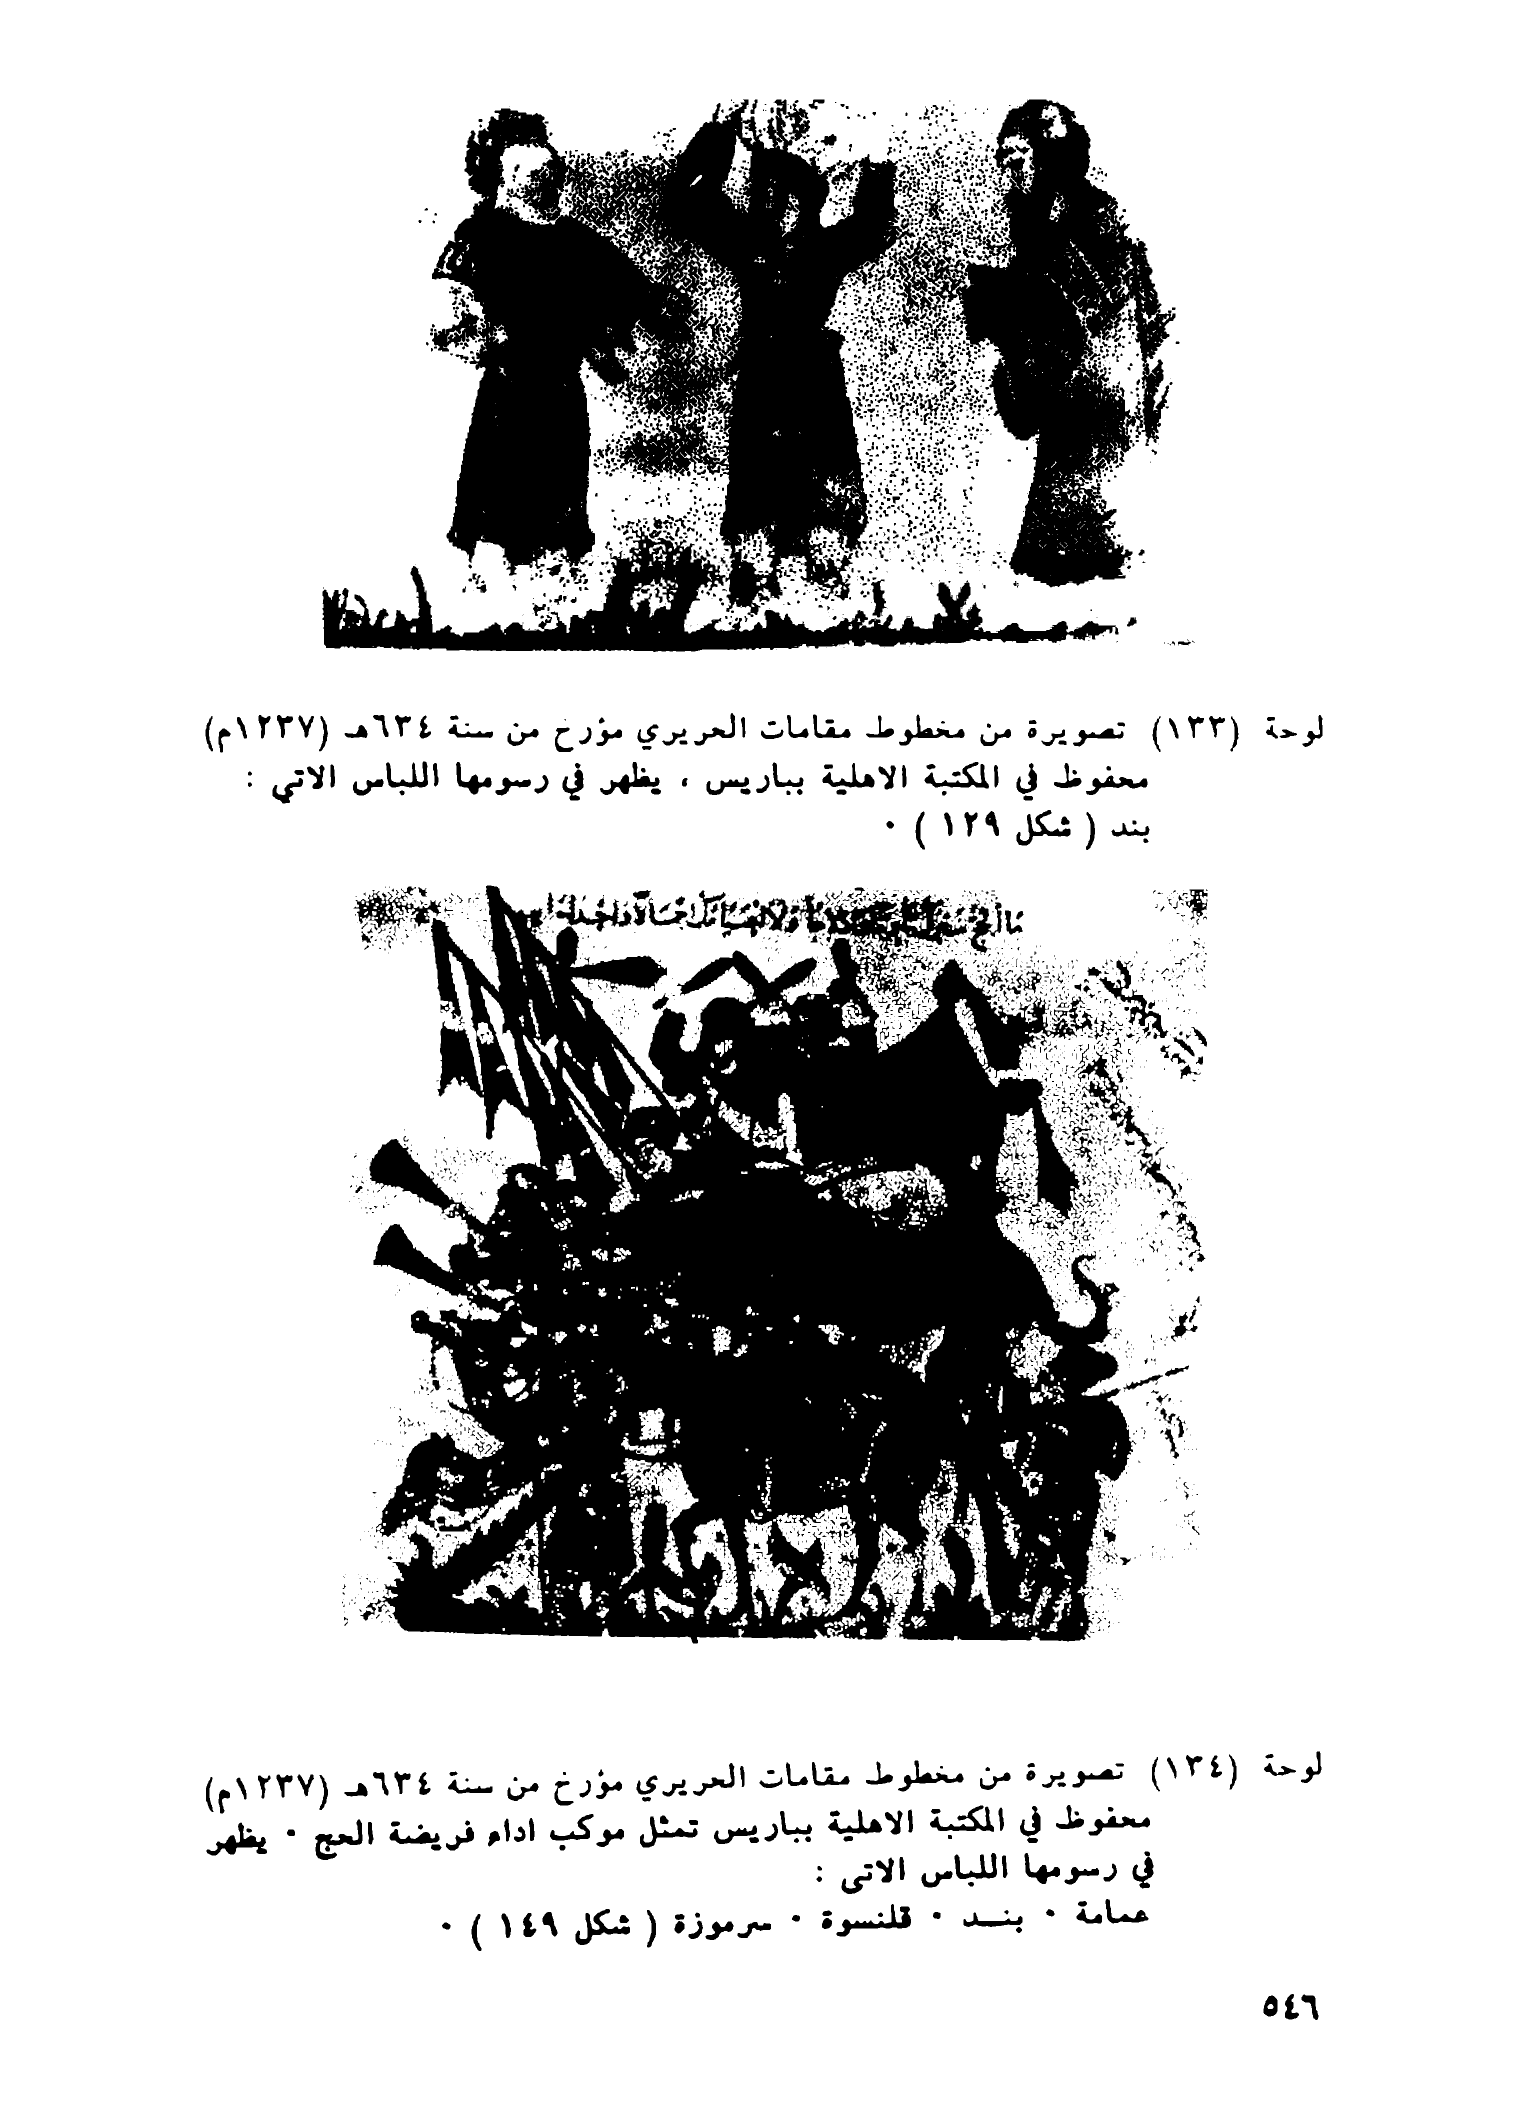 لوحة (١٣٣) تصويرة من مخطوط مقامات الحريري مؤرخ من سنة ٦٣٤هـ (١٢٣٧م)
محفوظ في المكتبة الاهلية بباريس ، يظهر في رسومها اللباس الاتي :
بند ( شكل ١٢٩ ) ٠
لوحة (١٣٤) تصويرة من مخطوط مقامات الحريري مؤرخ من سنة ٦٣٤هـ (١٢٣٧م)
محفوظ في المكتبة الاهلية بباريس تمثل موكب اداء فريضة الحج ٠ يظهر
في رسومها اللباس الاتى :
عمامة ٠ بنـــد ٠ قلنسوة ٠ سرموزة ( شكل ١٤٩ ) ٠
٥٤٦